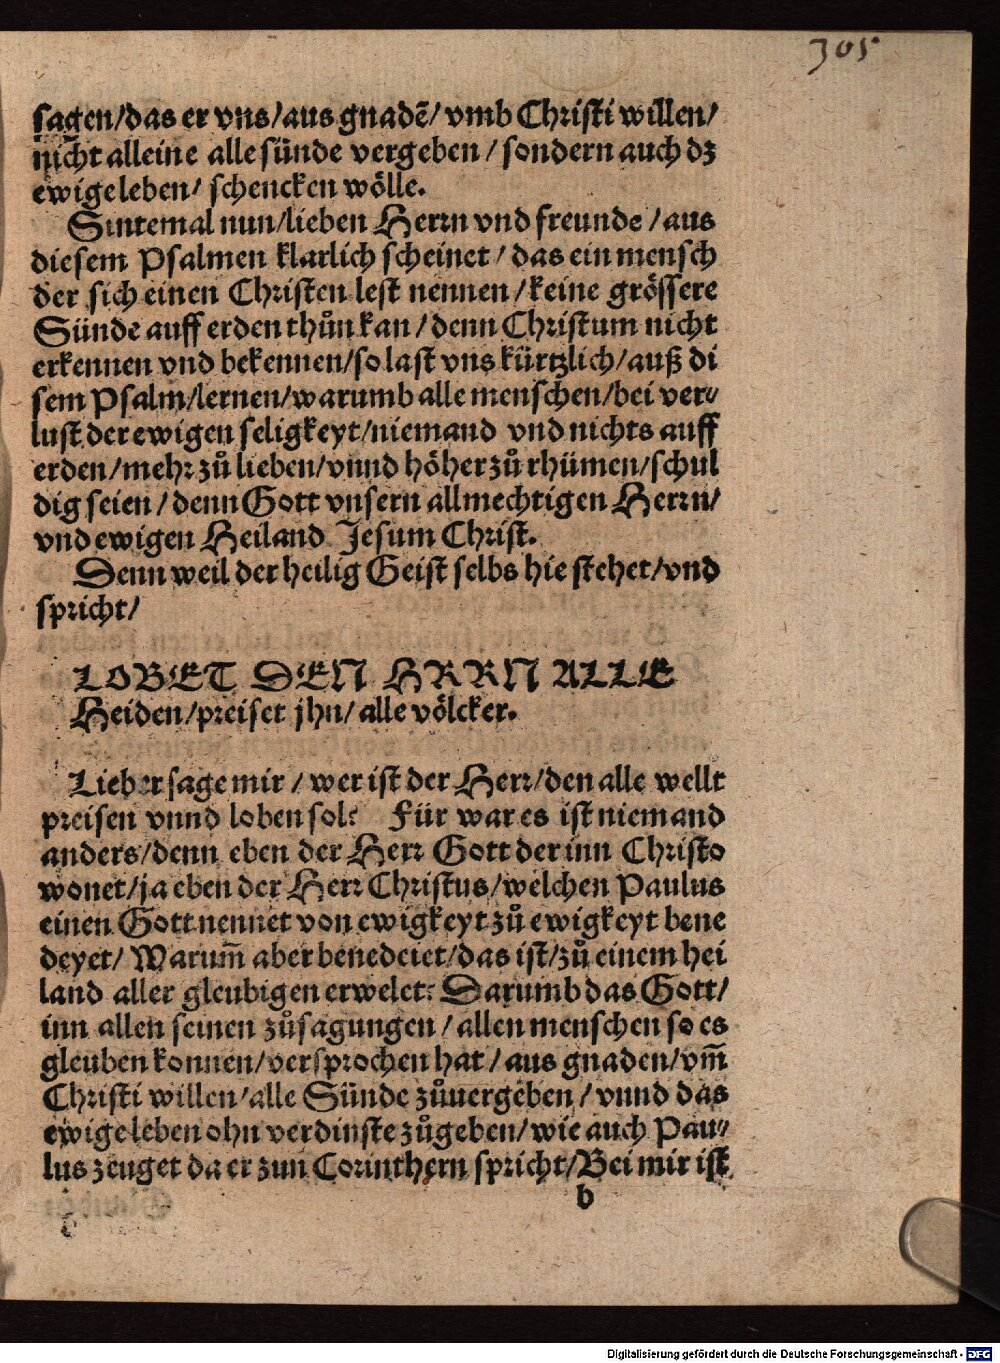 305
sagen/das er vns/aus gnadẽ/ vmb Christi willen/
nicht alleine alle sünde vergeben / sondern auch dz
ewige leben/ schencken wölle.
Sintemal nun/lieben Herrn vnd freunde /aus
diesem Psalmen klarlich scheinet / das ein mensch
der sich einen Christen lest nennen /keine grössere
Sünde auff erden thůn kan / denn Christum nicht
erkennen vnd bekennen/so last vns kürtzlich/auß di
sem Psalm/lernen/warumb alle menschen/bei ver⸗
lust der ewigen seligkeyt/niemand vnd nichts auff
erden/mehr zů lieben/vnnd höher zů rhümen/schul
dig seien / denn Gott vnsern allmechtigen Herrn/
vnd ewigen Heiland Jesum Christ.
Denn weil der heilig Geist selbs hie stehet/vnd
spricht/
LOBET DEN HRRN ALLE
Heiden/preiset jhn/ alle völcker.
Lieber sage mir / wer ist der Herr/den alle wellt
preisen vnnd loben sol? Für war es ist niemand
anders/denn eben der Herr Gott der inn Christo
wonet/ja eben der Herr Christus/welchen Paulus
einen Gott nennet von ewigkeyt zů ewigkeyt bene
deyet/ Warum̃ aber benedeiet/das ist/zů einem hei
land aller gleubigen erwelet? Darumb das Gott/
inn allen seinen zůsagungen / allen menschen so es
gleuben konnen/versprochen hat / aus gnaden/vm̃
Christi willen/alle Sünde zůuergeben / vnnd das
ewige leben ohn verdinste zůgeben/wie auch Pau⸗
lus zeuget da er zun Corinthern spricht/Bei mir ist
b
Digitalisierung gefördert durch die Deutsche Forschungsgemeinschaft - DFG